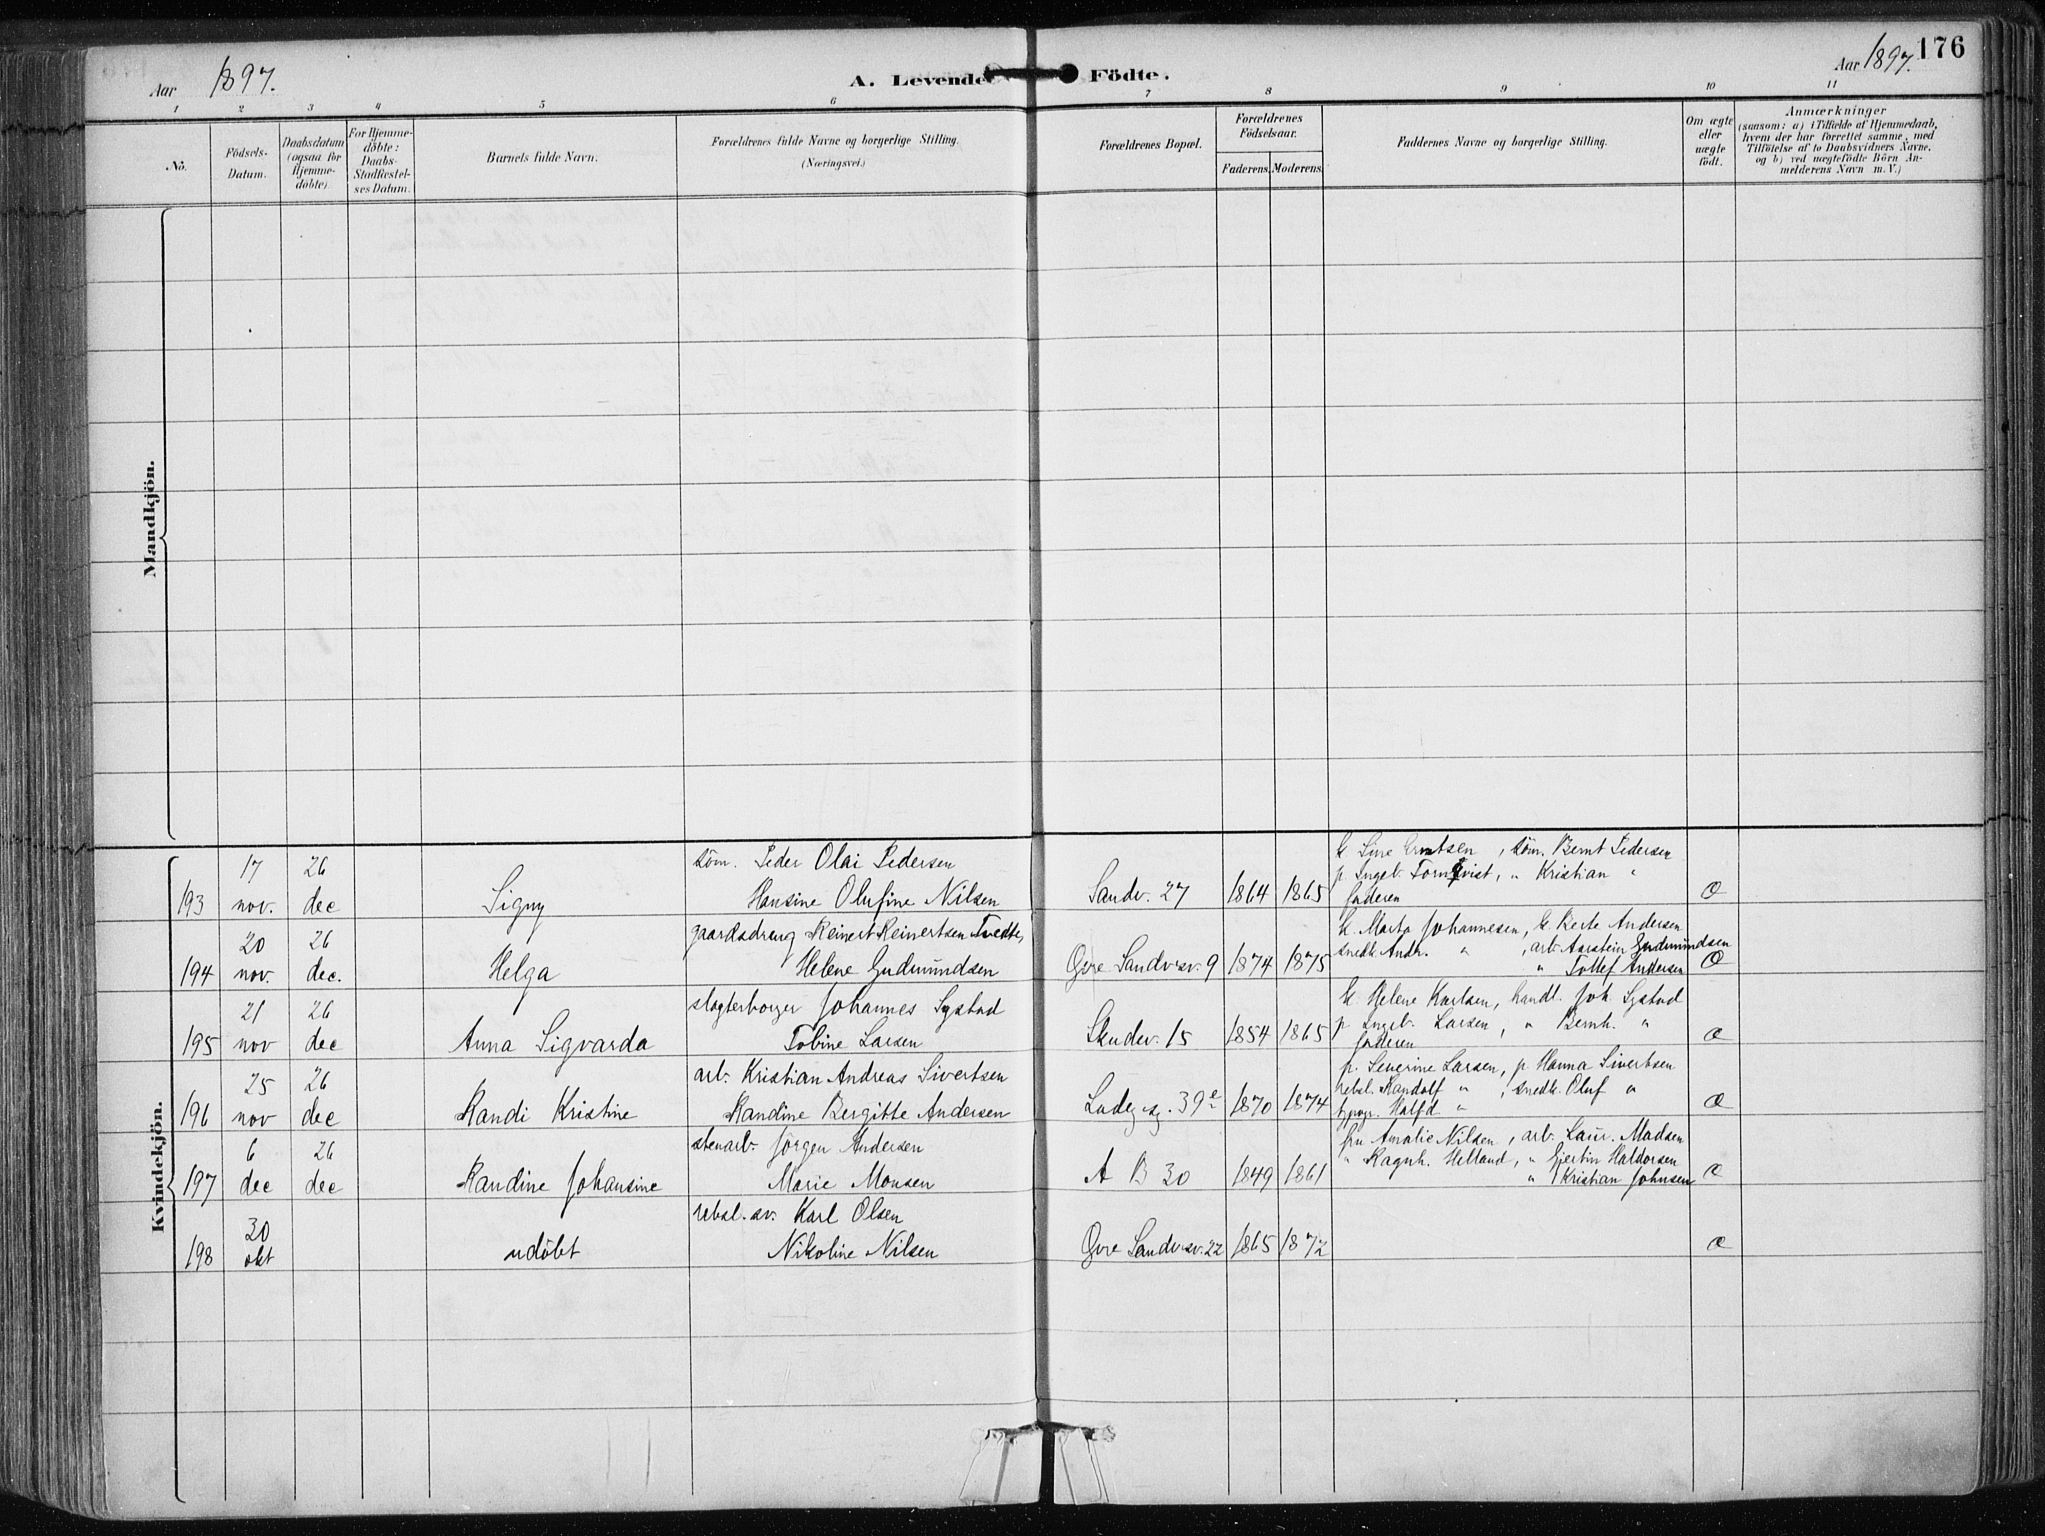 Aar 1897.
A. Levende Födte.
Aar 1897.
176
1 2 3 4 5 6 7 8 9 10 11
No.
Födsels-Datum.
Daabsdatum (ogsaa for Hjemme-döbte).
For Hjemme-döbte: Daabs-Stadfæstel-ses Datum.
Barnets fulde Navn.
Forældrenes fulde Navne og borgerlige Stilling.
(Næringsvei.)
Forældrenes Bopæl.
Forældrenes Födselsaar.
Faderens. Moderens.
Faddernes Navne og borgerlige Stilling.
Om ægte eller uægte födt.
Anmærkninger
(saasom: a) i Tilfælde af Hjemmedaab, hvem der har forrettet samme, med Tilföielse af to Daabsvidners Navne, og b) ved uægtefödte Börn An-melderens Navn m. V.)
Mandkjön.
Kvindekjön.
193
17 nov.
26 dec
Signy
söm. Peder Olai Pedersen
Hansine Olufine Nilsen
Sandv. 27
1864
1865
k. Sine Berntsen, söm. Bernt Pedersen
p. Ingeb. Tornqvist, " Kristian "
faderen
Æ
194
20 nov.
26 dec.
Helga
gaardsdreng Reinert Reinertsen Tvedte,
Helene Gudmundsen
Øvre Sandvsv. 9
1874
1875
k. Marta Johannesen, k. Berte Andersen
snedk. Andr. " , arb. Aarstein Gudmundsen
" Tollef Andersen
Æ
195
21 nov
26 dec
Anna Sigvarda
slagterborger Johannes Systad
Tobine Larsen
Skudev. 15
1854
1865
k. Helene Karlsen, handl. Joh. Systad
p Ingeb. Larsen, " Bernh. "
faderen
æ
196
25 nov
26 dec
Randi Kristine
arb. Kristian Andreas Sivertsen
Randine Bergitte Andersen
Ladeg.g. 39e
1870
1874
p. Severine Larsen, p. Hanna Sivertsen
rebsl. Randolf " , snedk. Oluf "
typogr. Halfd "
æ
197
6 dec
26 dec
Randine Johansine
stenarb. Jörgen Andersen
Marie Monsen
A B 30
1849
1861
fru Amalie Nilsen, arb. Laur. Madsen
" Ragnh. Helland, " Gjertin Haldorsen
" Kristian Johnsen
æ
198
30 okt
udöbt
rebsl. sv. Karl Olsen
Nikoline Nilsen
Øvre Sandvsv. 22
1865
1872
æ